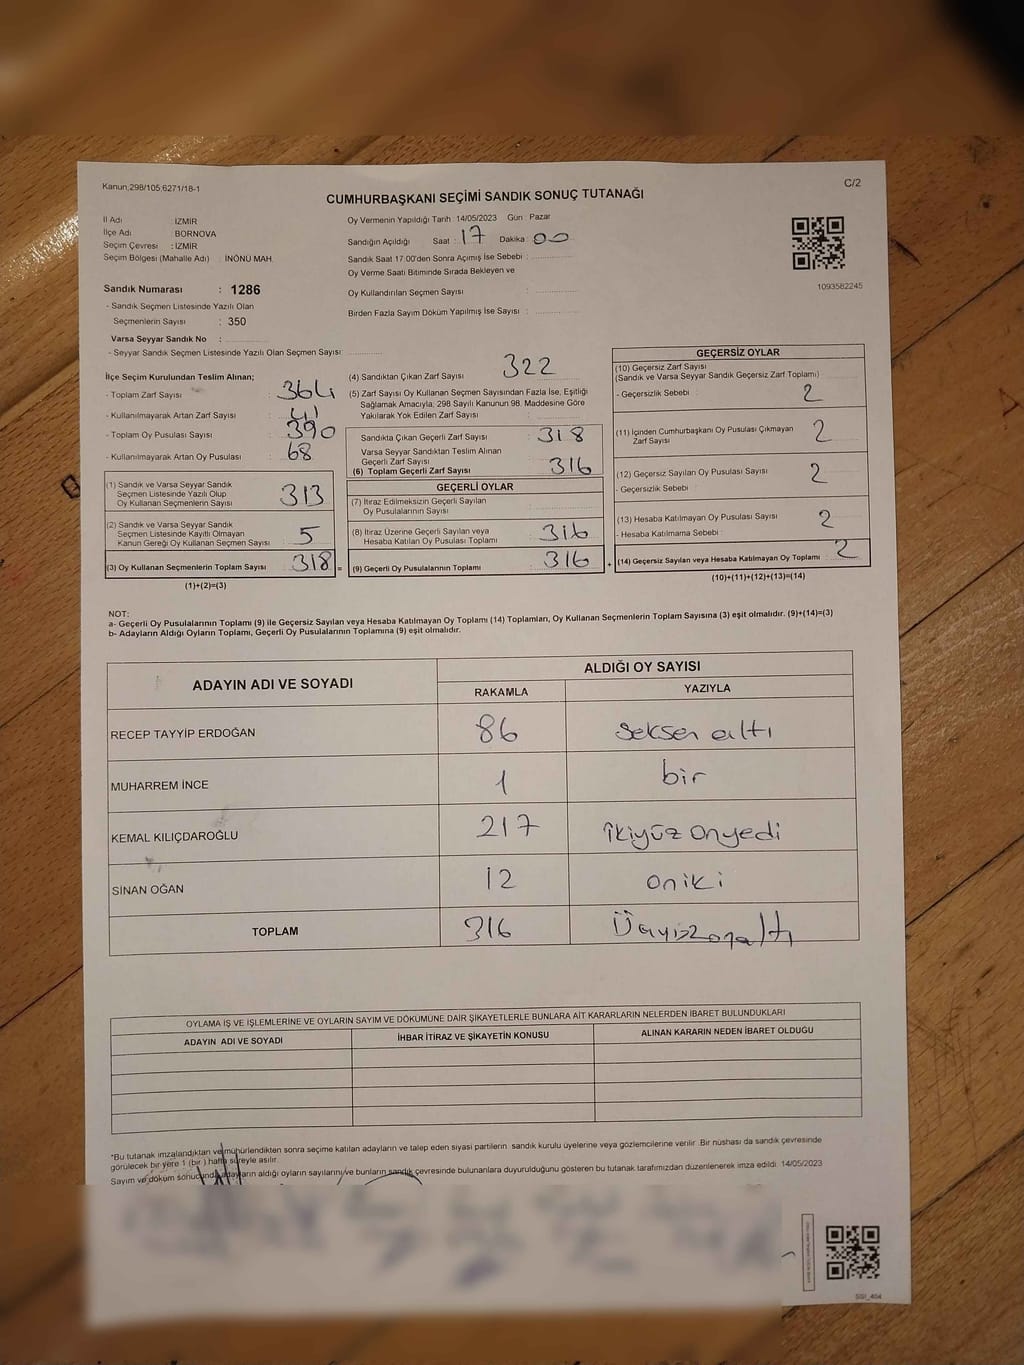 Kanun,298/105,6271/18-1
C/2
CUMHURBAŞKANI SEÇİMİ SANDIK SONUÇ TUTANAĞI
İl Adı : İZMİR
İlçe Adı : BORNOVA
Seçim Çevresi : İZMİR
Seçim Bölgesi (Mahalle Adı) : İNÖNÜ MAH.
Oy Vermenin Yapıldığı Tarih 14/05/2023 Gün : Pazar
Sandığın Açıldığı Saat : 17 Dakika : 00
Sandık Saat 17:00'den Sonra Açımış İse Sebebi :
Oy Verme Saati Bitiminde Sırada Bekleyen ve
Oy Kullandırılan Seçmen Sayısı :
Birden Fazla Sayım Döküm Yapılmış İse Sayısı :
1093582245
Sandık Numarası : 1286
- Sandık Seçmen Listesinde Yazılı Olan
Seçmenlerin Sayısı : 350
Varsa Seyyar Sandık No :
- Seyyar Sandık Seçmen Listesinde Yazılı Olan Seçmen Sayısı
İlçe Seçim Kurulundan Teslim Alınan;
- Toplam Zarf Sayısı : 364
- Kullanılmayarak Artan Zarf Sayısı : 41
- Toplam Oy Pusulası Sayısı : 390
- Kullanılmayarak Artan Oy Pusulası : 68
(1) Sandık ve Varsa Seyyar Sandık
Seçmen Listesinde Yazılı Olup
Oy Kullanan Seçmenlerin Sayısı 313
(2) Sandık ve Varsa Seyyar Sandık
Seçmen Listesinde Kayıtlı Olmayan
Kanun Gereği Oy Kullanan Seçmen Sayısı 5
(3) Oy Kullanan Seçmenlerin Toplam Sayısı 318 =
(1)+(2)=(3)
(4) Sandıktan Çıkan Zarf Sayısı 322
(5) Zarf Sayısı Oy Kullanan Seçmen Sayısından Fazla İse, Eşitliği
Sağlamak Amacıyla; 298 Sayılı Kanunun 98. Maddesine Göre
Yakılarak Yok Edilen Zarf Sayısı :
Sandıkta Çıkan Geçerli Zarf Sayısı : 318
Varsa Seyyar Sandıktan Teslim Alınan
Geçerli Zarf Sayısı
(6) Toplam Geçerli Zarf Sayısı 316
GEÇERLİ OYLAR
(7) İtiraz Edilmeksizin Geçerli Sayılan
Oy Pusulalarının Sayısı
(8) İtiraz Üzerine Geçerli Sayılan veya
Hesaba Katılan Oy Pusulası Toplamı 316
(9) Geçerli Oy Pusulalarının Toplamı 316 +
GEÇERSİZ OYLAR
(10) Geçersiz Zarf Sayısı
(Sandık ve Varsa Seyyar Sandık Geçersiz Zarf Toplamı)
- Geçersizlik Sebebi : 2
(11) İçinden Cumhurbaşkanı Oy Pusulası Çıkmayan
Zarf Sayısı 2
(12) Geçersiz Sayılan Oy Pusulası Sayısı 2
- Geçersizlik Sebebi :
(13) Hesaba Katılmayan Oy Pusulası Sayısı 2
- Hesaba Katılmama Sebebi :
(14) Geçersiz Sayılan veya Hesaba Katılmayan Oy Toplamı : 2
(10)+(11)+(12)+(13)=(14)
NOT:
a- Geçerli Oy Pusulalarının Toplamı (9) ile Geçersiz Sayılan veya Hesaba Katılmayan Oy Toplamı (14) Toplamları, Oy Kullanan Seçmenlerin Toplam Sayısına (3) eşit olmalıdır. (9)+(14)=(3)
b- Adayların Aldığı Oyların Toplamı, Geçerli Oy Pusulalarının Toplamına (9) eşit olmalıdır.
ADAYIN ADI VE SOYADI
ALDIĞI OY SAYISI
RAKAMLA YAZIYLA
RECEP TAYYİP ERDOĞAN 86 seksen altı
MUHARREM İNCE 1 bir
KEMAL KILIÇDAROĞLU 217 ikiyüz onyedi
SİNAN OĞAN 12 oniki
TOPLAM 316
OYLAMA İŞ VE İŞLEMLERİNE VE OYLARIN SAYIM VE DÖKÜMÜNE DAİR ŞİKAYETLERLE BUNLARA AİT KARARLARIN NELERDEN İBARET BULUNDUKLARI
ADAYIN ADI VE SOYADI İHBAR İTİRAZ VE ŞİKAYETİN KONUSU ALINAN KARARIN NEDEN İBARET OLDUĞU
*Bu tutanak imzalandıktan ve mühürlendikten sonra seçime katılan adayların ve talep eden siyasi partilerin sandık kurulu üyelerine veya gözlemcilerine verilir. Bir nüshası da sandık çevresinde
görülecek bir yere 1 (bir) hafta süreyle asılır.
Sayım ve döküm sonucunda adayların aldığı oyların sayılarını ve bunların sandık çevresinde bulunanlara duyurulduğunu gösteren bu tutanak tarafımızdan düzenlenerek imza edildi. 14/05/2023
SSI_404